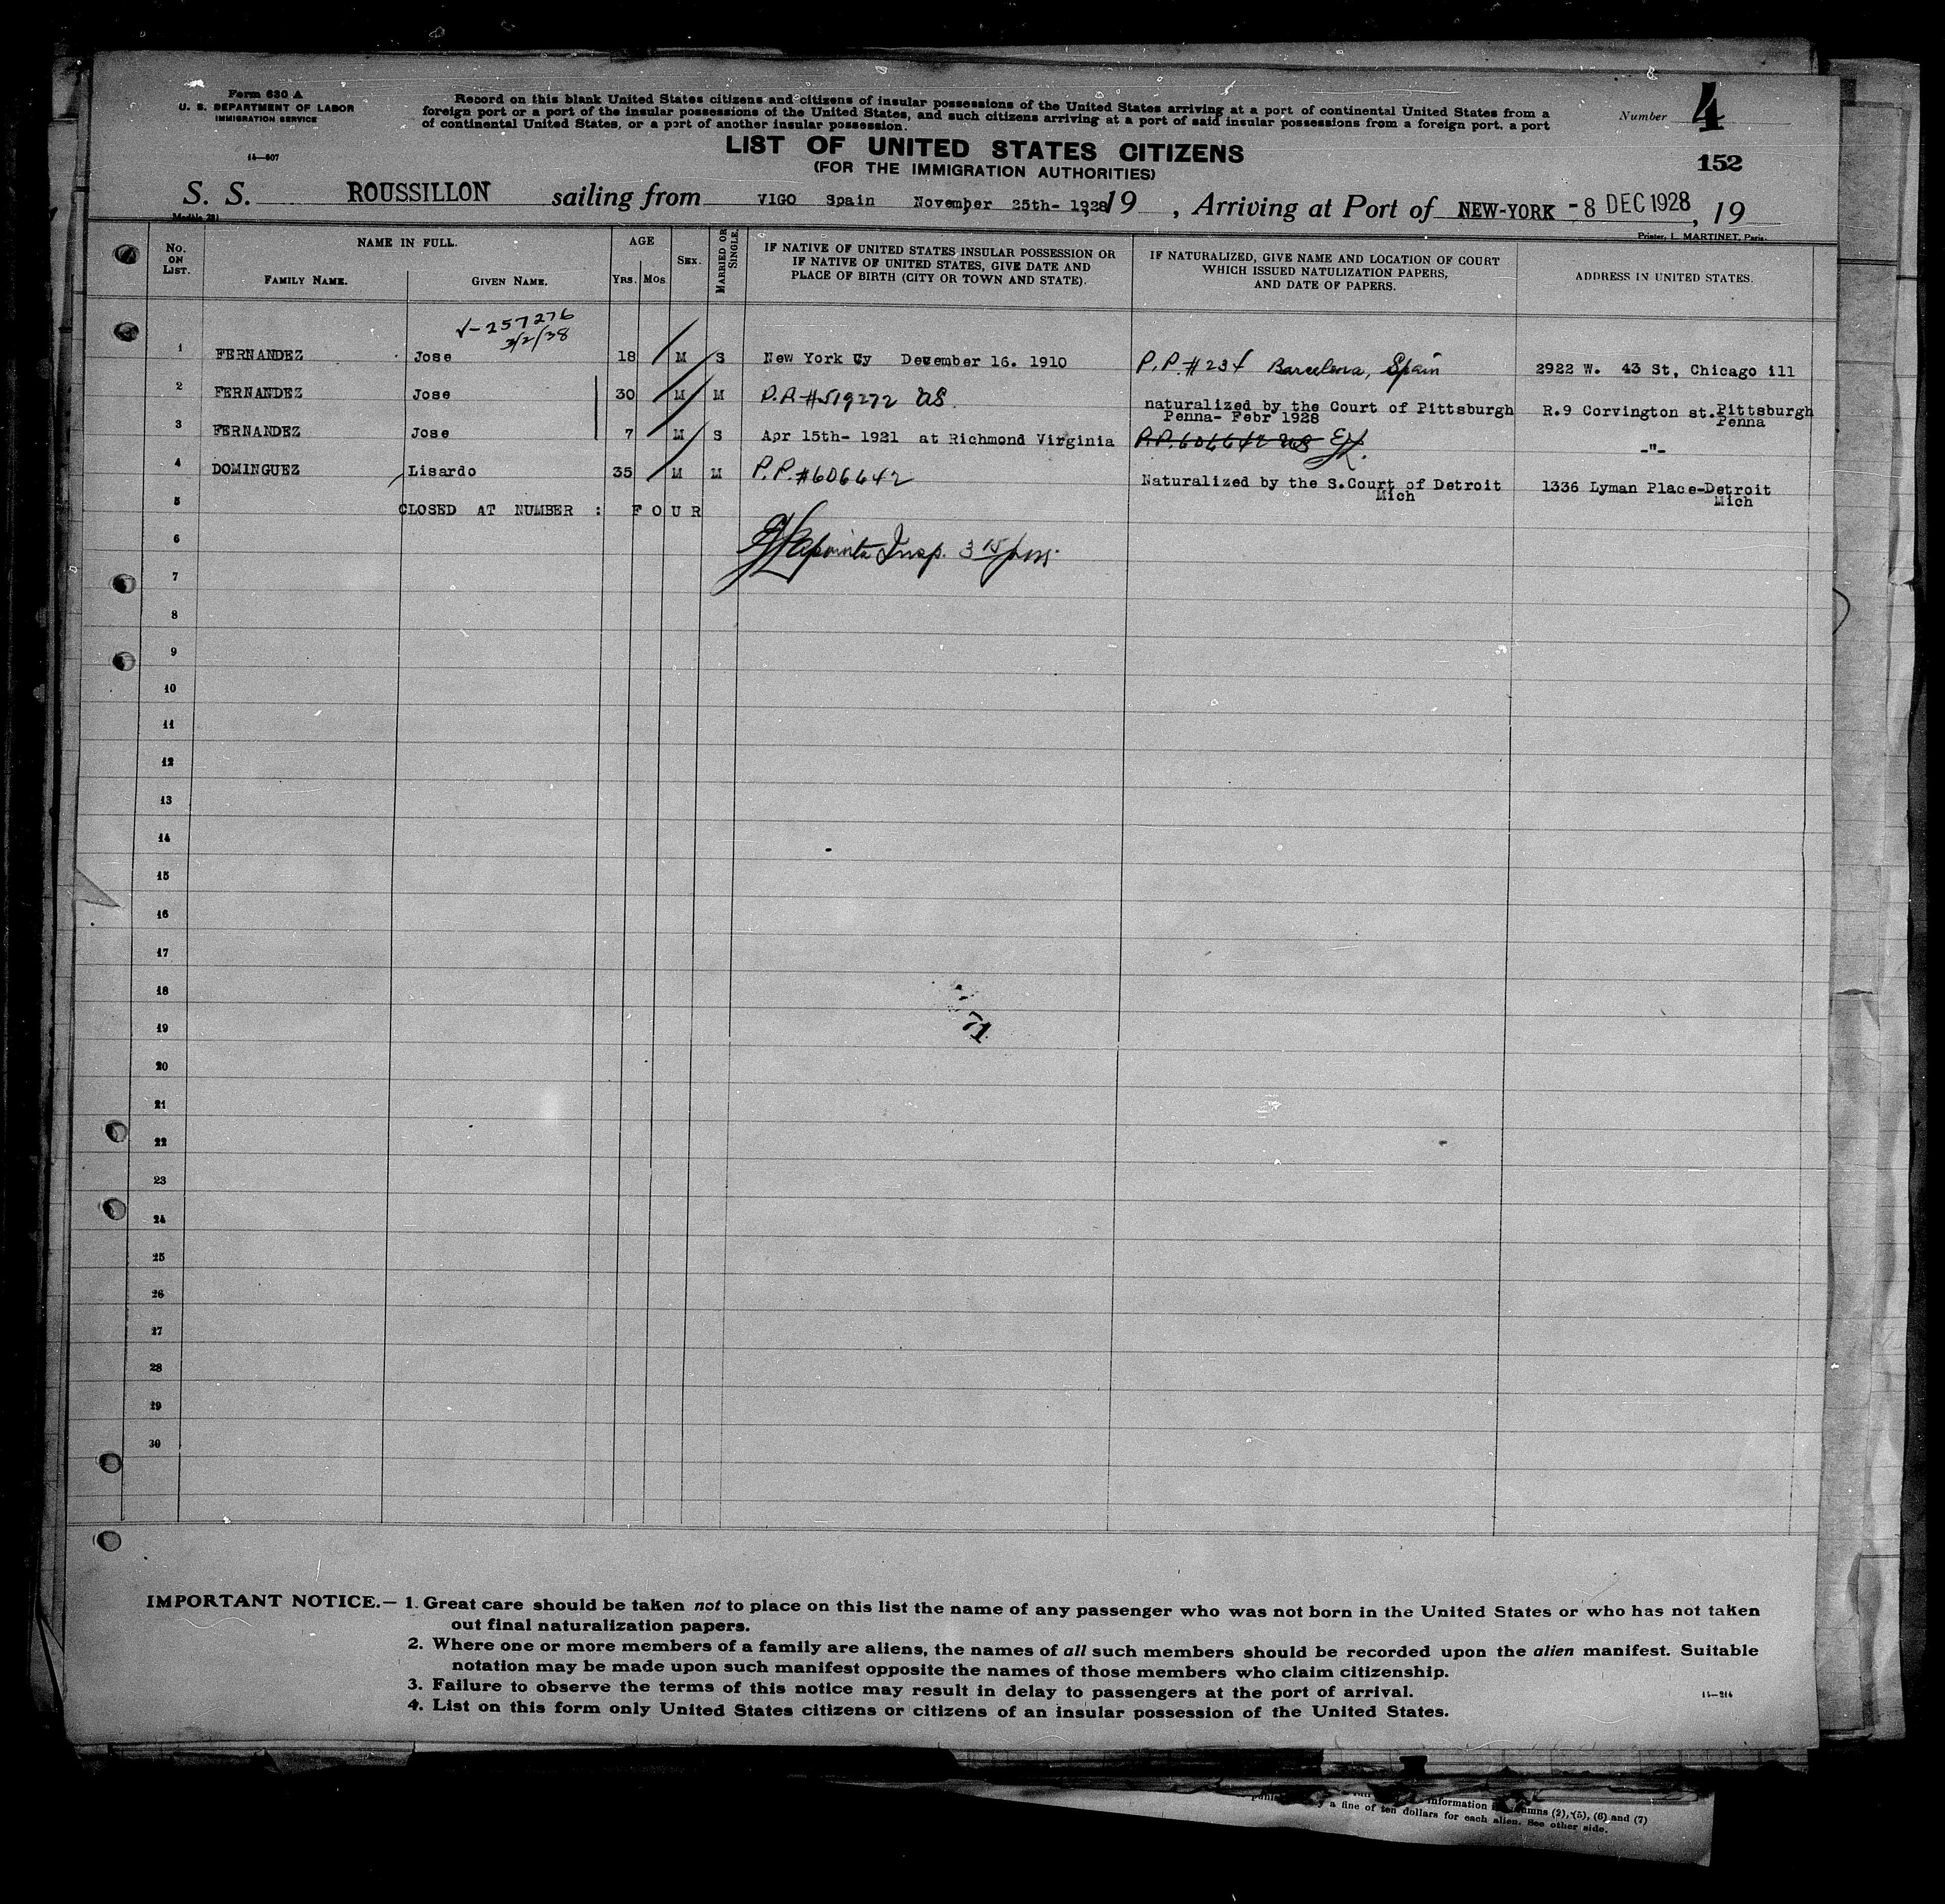 Form 630 A
U. S. DEPARTMENT OF LABOR
IMMIGRATION SERVICE
14—507
Record on this blank United States citizens and citizens of insular possessions of the United States arriving at a port of continental United States from a
foreign port or a port of the insular possessions of the United States, and such citizens arriving at a port of said insular possessions from a foreign port, a port
of continental United States, or a port of another insular possession.
Number 4
LIST OF UNITED STATES CITIZENS
(FOR THE IMMIGRATION AUTHORITIES)
152
S. S. ROUSSILLON sailing from VIGO Spain November 25th- 1928 19 , Arriving at Port of NEW-YORK -8 DEC 1928, 19
Printer, L. MARTINET, Paris.
No. ON LIST.
NAME IN FULL.
FAMILY NAME.
GIVEN NAME.
AGE
YRS.
MOS
SEX.
MARRIED OR SINGLE.
IF NATIVE OF UNITED STATES INSULAR POSSESSION OR
IF NATIVE OF UNITED STATES, GIVE DATE AND
PLACE OF BIRTH (CITY OR TOWN AND STATE).
IF NATURALIZED, GIVE NAME AND LOCATION OF COURT
WHICH ISSUED NATULIZATION PAPERS,
AND DATE OF PAPERS.
ADDRESS IN UNITED STATES.
√-257276
3/2/38
1 FERNANDEZ Jose 18 M S New York Cy December 16. 1910 P.P.# 234 Barcelona, Spain 2922 W. 43 St, Chicago ill
2 FERNANDEZ Jose 30 M M P.P.#519272 US naturalized by the Court of Pittsburgh R.9 Corvington st.Pittsburgh
Penna- Febr 1928 Penna
3 FERNANDEZ Jose 7 M S Apr 15th- 1921 at Richmond Virginia P.P.606642 US -"-
4 DOMINGUEZ Lisardo 35 M M P.P.#606642 Naturalized by the S.Court of Detroit 1336 Lyman Place-Detroit
Mich Mich
5 CLOSED AT NUMBER : F O U R
6 Insp.
7
8
9
10
11
12
13
14
15
16
17
18
19
71
20
21
22
23
24
25
26
27
28
29
30
IMPORTANT NOTICE.— 1. Great care should be taken not to place on this list the name of any passenger who was not born in the United States or who has not taken
out final naturalization papers.
2. Where one or more members of a family are aliens, the names of all such members should be recorded upon the alien manifest. Suitable
notation may be made upon such manifest opposite the names of those members who claim citizenship.
3. Failure to observe the terms of this notice may result in delay to passengers at the port of arrival.
4. List on this form only United States citizens or citizens of an insular possession of the United States.
14—214
information columns (2), (5), (6) and (7)
a fine of ten dollars for each alien. See other side.